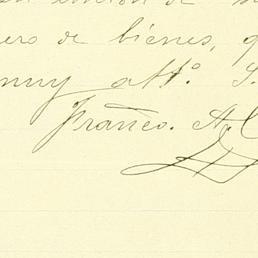 ero de bienes, q
muy att.º S.
Franco. A. C